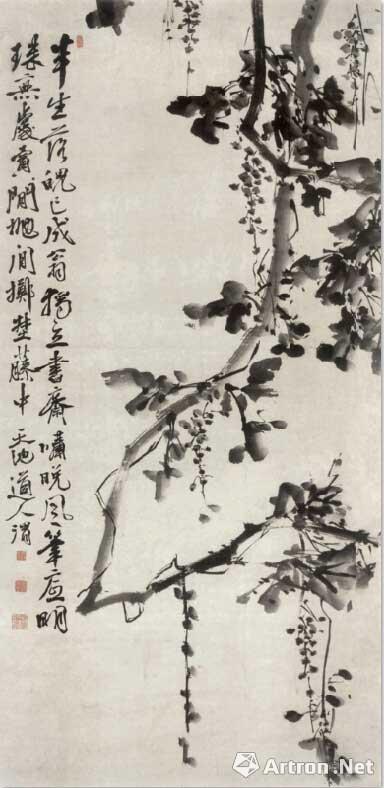 半生落魄已成翁獨立書齋嘯晚風筆底明
珠無處賣閒拋閒擲埜藤中 天池道人渭
Artron.Net